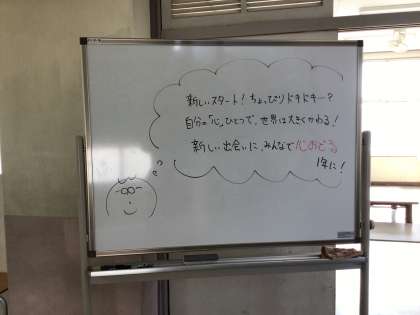 新しいスタート！ちょっぴりドキドキー？
自分の「心」ひとつで、世界は大きくかわる！
新しい出会いに、みんなで心おどる
1年に！